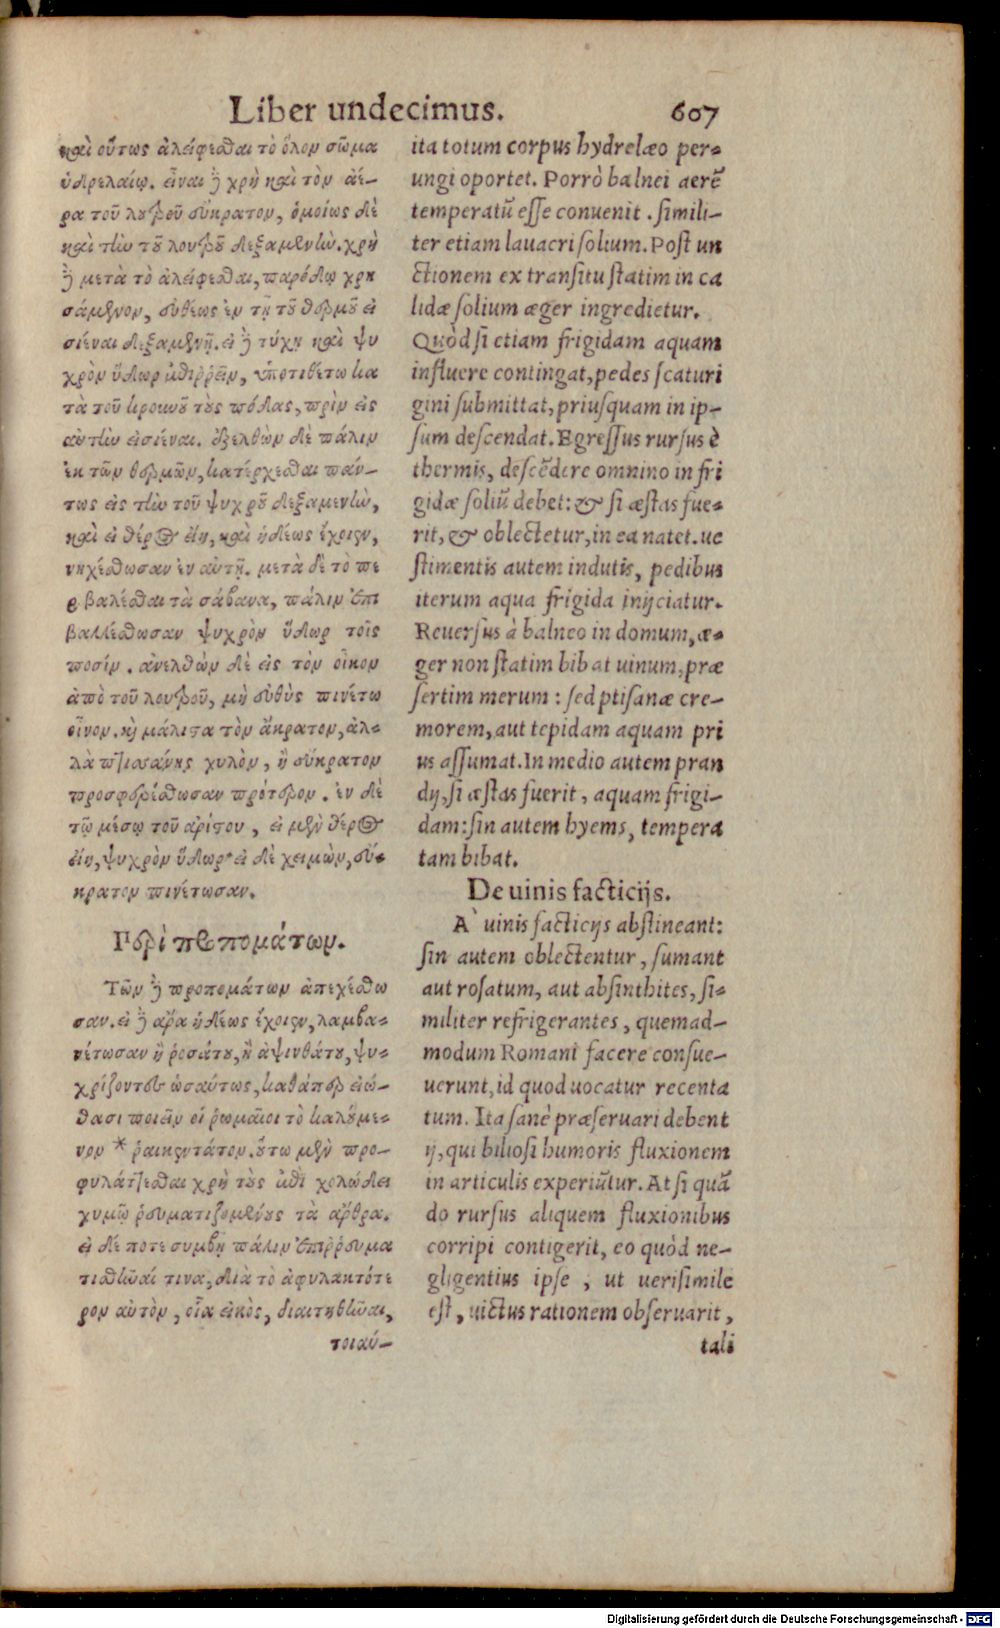 Liber undecimus. 607
καὶ οὕτως ἀλείφεσθαι τὸ ὅλον σῶμα
ὑδρελαίῳ. εἶναι δὲ χρὴ καὶ τὸν ἀέ-
ρα τοῦ λουτροῦ εὔκρατον, ὁμοίως δὲ
καὶ τὴν τοῦ λουτροῦ δεξαμενήν. χρὴ
δὲ μετὰ τὸ ἀλείφεσθαι, παρόδῳ χρη
σάμενον, εὐθέως ἐν τῇ τοῦ θερμοῦ εἰ
σιέναι δεξαμενῇ. εἰ δὲ τύχῃ καὶ ψυ
χρὸν ὕδωρ ἐπιρρεῖν, ὑποτιθέτω κα
τὰ τοῦ κρουνοῦ τοὺς πόδας, πρὶν εἰς
αὐτὴν εἰσιέναι. ἐξελθὼν δὲ πάλιν
ἐκ τῶν θερμῶν, κατέρχεσθαι πάν-
τως εἰς τὴν τοῦ ψυχροῦ δεξαμενὴν,
καὶ εἰ θέρος εἴη, καὶ ἡδέως ἔχοιεν,
νηχέσθωσαν ἐν αὐτῇ. μετὰ δὲ τὸ πε
ριβαλέσθαι τὰ σάβανα, πάλιν ἐπι
βαλλέσθωσαν ψυχρὸν ὕδωρ τοῖς
ποσίν. ἀνελθὼν δὲ εἰς τὸν οἶκον
ἀπὸ τοῦ λουτροῦ, μὴ εὐθὺς πινέτω
οἶνον. καὶ μάλιστα τὸν ἄκρατον, ἀλ-
λὰ πτισάνης χυλὸν, ἢ εὔκρατον
προσφερέσθωσαν πρότερον. ἐν δὲ
τῷ μέσῳ τοῦ ἀρίστου, εἰ μὲν θέρος
εἴη, ψυχρὸν ὕδωρ· εἰ δὲ χειμὼν, εὔ-
κρατον πινέτωσαν.
Περὶ προπομάτων.
Τῶν δὲ προπομάτων ἀπεχέσθω
σαν. εἰ δὲ ἄρα ἡδέως ἔχοιεν, λαμβα-
νέτωσαν ἢ ῥοσάτου, ἢ ἀψινθάτου, ψυ-
χρίζοντες ὡσαύτως, καθάπερ εἰώ-
θασι ποιεῖν οἱ ῥωμαῖοι τὸ καλούμε-
νον * ῥαικεντάτον. οὕτω μὲν προ-
φυλάττεσθαι χρὴ τοὺς ἐπὶ χολώδει
χυμῷ ῥευματιζομένους τὰ ἄρθρα.
εἰ δέ ποτε συμβῇ πάλιν ἐπιρρευμα
τισθῆναί τινα, διὰ τὸ ἀφυλακτότε
ρον αὐτὸν, οἷα εἰκὸς, διαιτηθῆναι,
τοιαύ-
ita totum corpus hydrelæo per-
ungi oportet. Porrò balnei aerē
temperatū esse conuenit. simili-
ter etiam lauacri solium. Post un
ctionem ex transitu statim in ca
lidæ solium æger ingredietur.
Quòd si etiam frigidam aquam
influere contingat, pedes scaturi
gini submittat, priusquam in ip-
sum descendat. Egressus rursus è
thermis, descēdere omnino in fri
gidæ soliū debet: & si æstas fue-
rit, & oblectetur, in ea natet. ue
stimentis autem indutis, pedibus
iterum aqua frigida inijciatur.
Reuersus à balneo in domum, æ-
ger non statim bibat uinum, præ
sertim merum: sed ptisanæ cre-
morem, aut tepidam aquam pri
us assumat. In medio autem pran
dij, si æstas fuerit, aquam frigi-
dam: sin autem hyems, tempera
tam bibat.
De uinis facticijs.
A` uinis facticijs abstineant:
sin autem oblectentur, sumant
aut rosatum, aut absinthites, si-
militer refrigerantes, quemad-
modum Romani facere consue-
uerunt, id quod uocatur recenta
tum. Ita sanè præseruari debent
ij, qui biliosi humoris fluxionem
in articulis experiūtur. At si quā
do rursus aliquem fluxionibus
corripi contigerit, eo quòd ne-
gligentius ipse, ut uerisimile
est, uictus rationem obseruarit,
tali
Digitalisierung gefördert durch die Deutsche Forschungsgemeinschaft - DFG